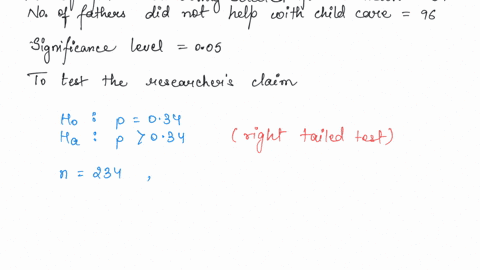 No. of fathers did not help with child care = 96
Significance level = 0.05
To test the researcher's claim
H₀ : p = 0.34
Hₐ : p > 0.34 (right tailed test)
n = 234 ,